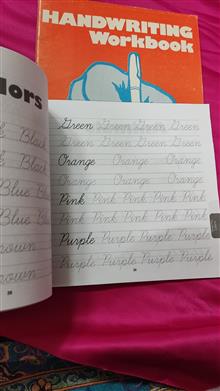 HANDWRITING
Workbook
lors
Black
Blue Blue
Brown
Green Green Green Green
Green Green Green Green
Orange Orange Orange
Orange Orange Orange
Pink Pink Pink Pink Pink
Pink Pink Pink Pink Pink
Purple Purple Purple Purple
Purple Purple Purple Purple